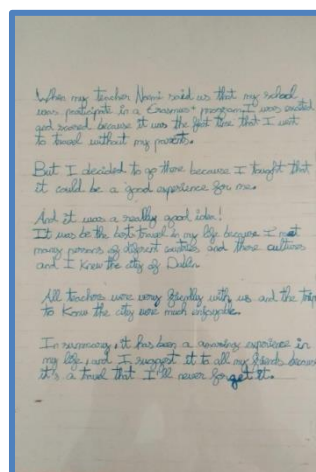 When my teacher Noemi said us that my school
was participate in a Erasmus+ program I was excited
and scared because it was the first time that I went
to travel without my parents.
But I decided to go there because I taught that
it could be a good experience for me.
And it was a really good idea!
It was be the best travel in my life because I met
many persons of diferent countries and those cultures
and I knew the city of Dublin.
All teachers were very friendly with us and the trips
to know the city were much enjoyable.
In summary, it has been a amazing experience in
my life, and I suggest it to all my friends because
it's a travel that I'll never forget it.